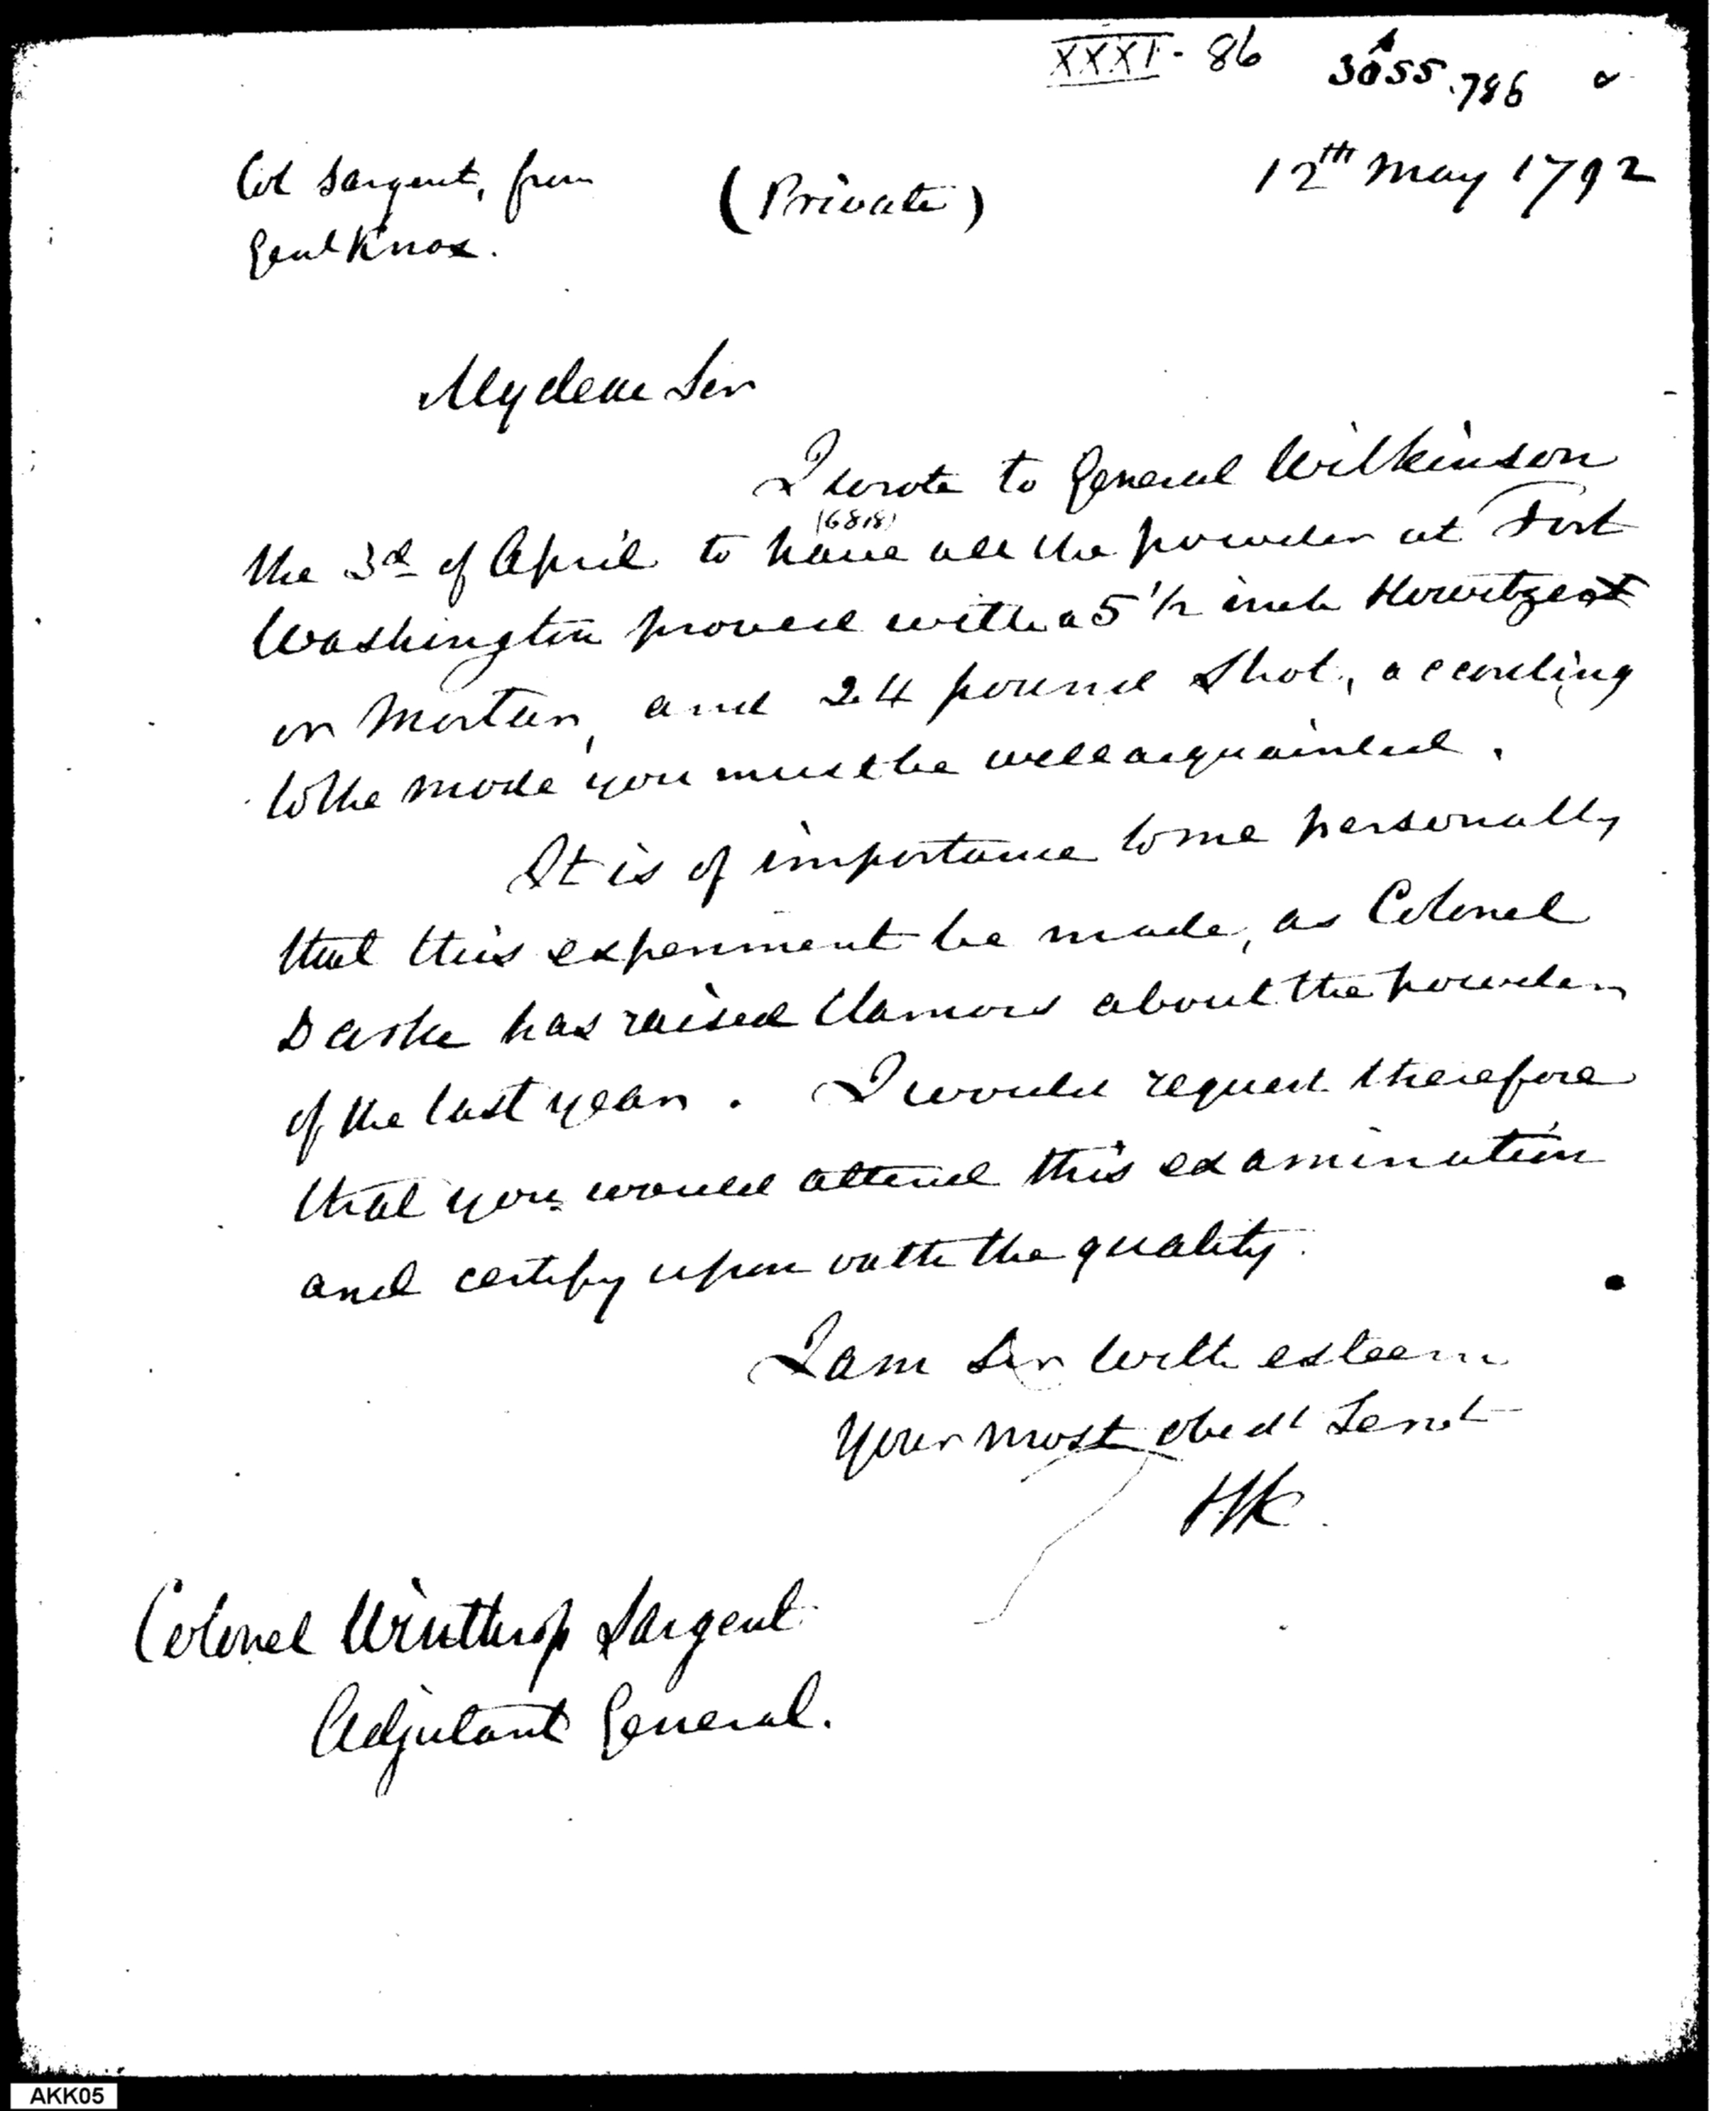 XXXI - 86 3055.786
12th May 1792
Col Sargent, from
Genl Knox.
(Private)
My dear Sir
I wrote to General Wilkinson
(6818)
the 3d of April to have all the powder at Fort
Washington proved with a 5 1/2 inch Howitzer
or Mortar, and 24 pound Shot, according
to the mode you must be well acquainted.
It is of importance to me personally
that this experiment be made, as Colonel
Darke has raised Clamors about the powder
of the last year. I would request therefore
that you would attend this examination
and certify upon oath the quality.
I am Sir with esteem
Your most obedt Servt
HK.
Colonel Winthrop Sargent
Adjutant General.
AKK05